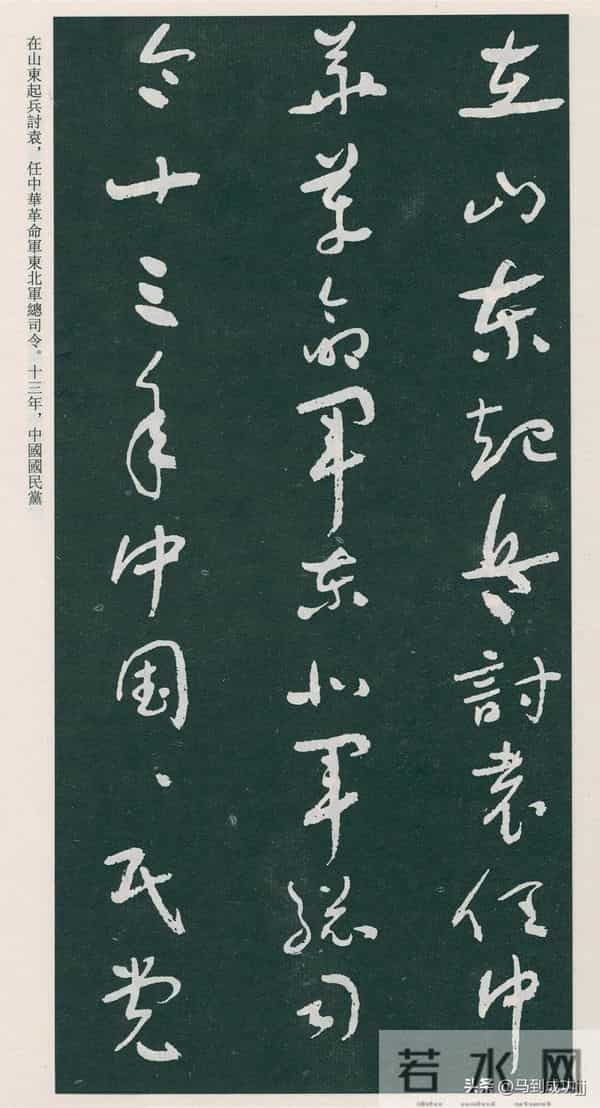 在山东起兵討袁任中
华革命军东北军総司
令十三年中国〻民党
在山東起兵討袁，任中華革命軍東北軍總司令。十三年，中國國民黨
若水网
头条 @马到成功jj